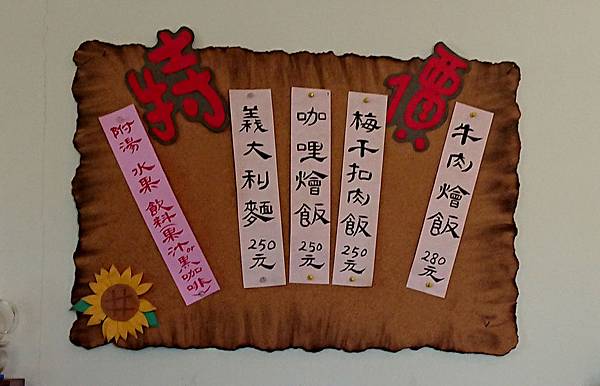 特價
附湯 水果 飲料果汁or黑咖啡
義大利麵 250元
咖哩燴飯 250元
梅干扣肉飯 250元
牛肉燴飯 280元